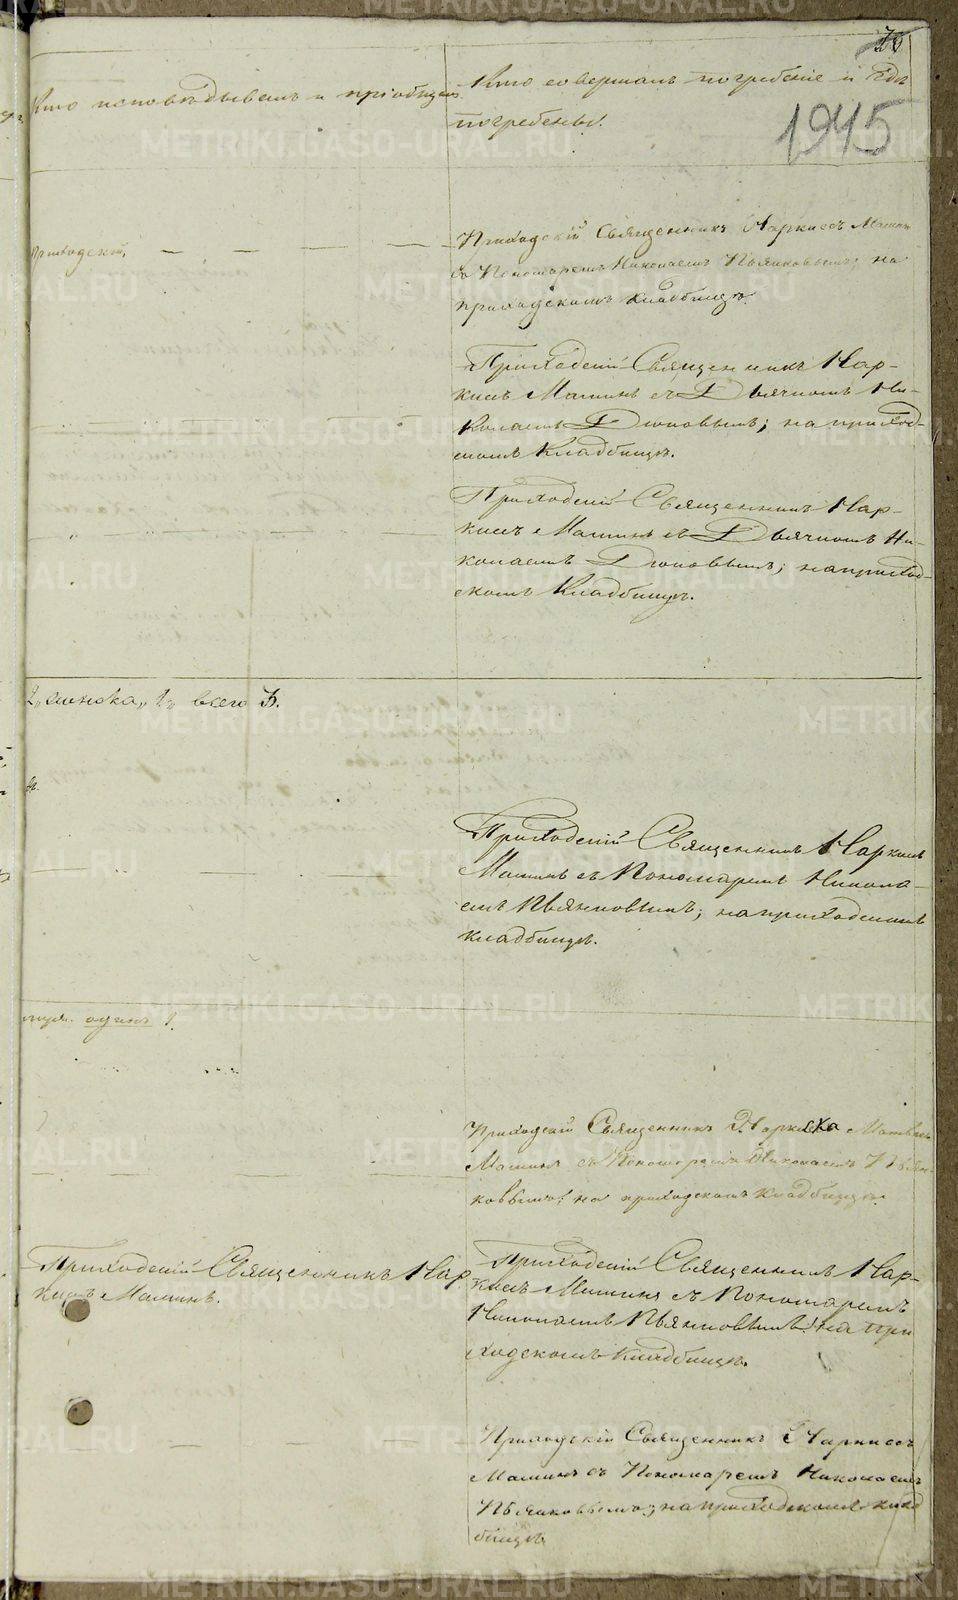 Кто исповѣдывалъ и пріобщалъ
Кто совершалъ погребеніе и гдѣ
погребены.
1945
Приходскій
Приходскій Священникъ Наркисъ Маминъ
съ Пономаремъ Николаемъ Пьянковымъ; на
приходскомъ кладбищѣ.
Приходскій Священникъ Нар-
кисъ Маминъ съ Дьячкомъ Ни-
колаемъ Дюковымъ; на приход-
скомъ Кладбищѣ.
Приходскій Священникъ Нар-
кисъ Маминъ съ Дьячкомъ Ни-
колаемъ Дюковымъ; на приход-
скомъ Кладбищѣ.
2, женска, 1, всего 3.
Приходскій Священникъ Наркисъ
Маминъ съ Пономаремъ Никола-
емъ Пьянковымъ; на приходскомъ
кладбищѣ.
одинъ 1.
Приходскій Священникъ
Маминъ съ Пономаремъ Николаемъ Пьян-
ковымъ; на приходскомъ кладбищѣ.
Приходскій Священникъ Нар
кисъ Маминъ.
Приходскій Священникъ Нар-
кисъ Маминъ съ Пономаремъ
Николаемъ Пьянковымъ; на при
ходскомъ кладбищѣ.
Приходскій Священникъ Наркисъ
Маминъ съ Пономаремъ Николаемъ
Пьянковымъ; на приходскомъ клад
бищѣ.
METRIKI.GASO-URAL.RU